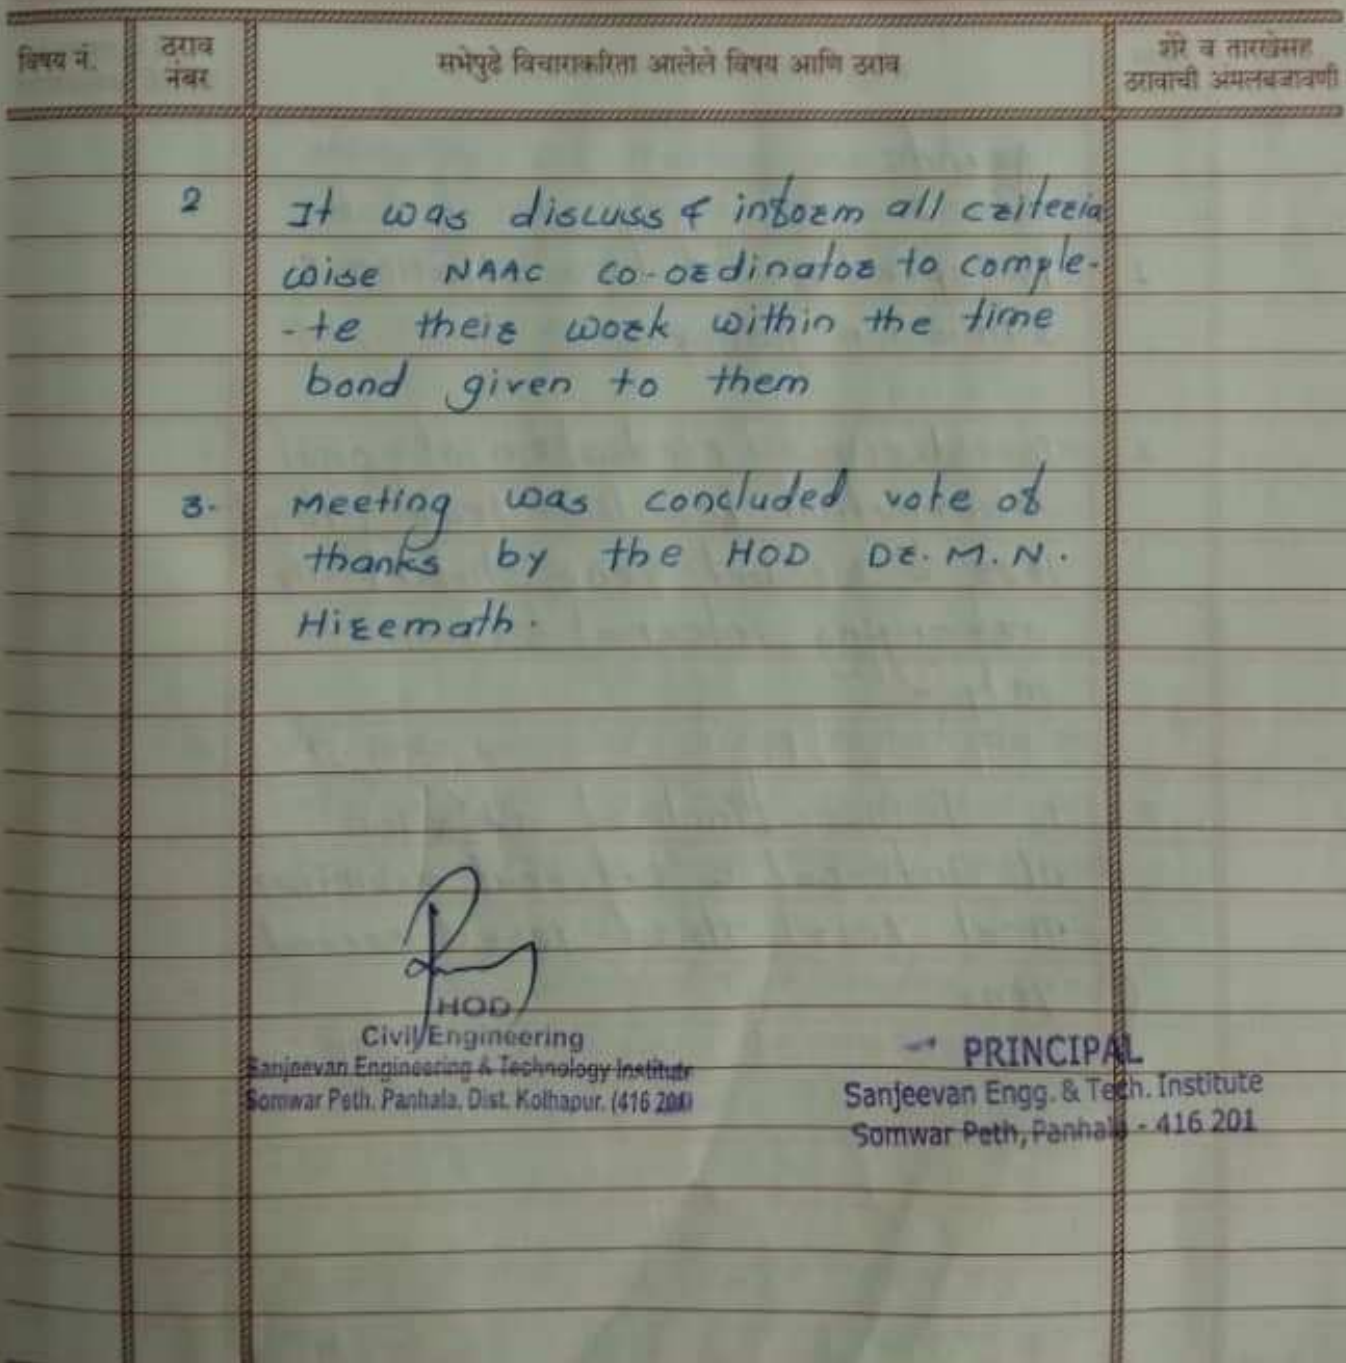 विषय नं.
ठराव
नंबर
सभेपुढे विचाराकरिता आलेले विषय आणि ठराव
शेरे व तारखेसह
ठरावाची अमलबजावणी
2
It was discuss & inform all criteria
wise NAAC co-ordinator to comple-
-te their work within the time
bond given to them
3.
Meeting was concluded vote of
thanks by the HOD Dr. M. N.
Hiremath.
HOD
Civil Engineering
Sanjeevan Engineering & Technology Institute
Somwar Peth, Panhala, Dist. Kolhapur. (416 201)
PRINCIPAL
Sanjeevan Engg. & Tech. Institute
Somwar Peth, Panhala - 416 201